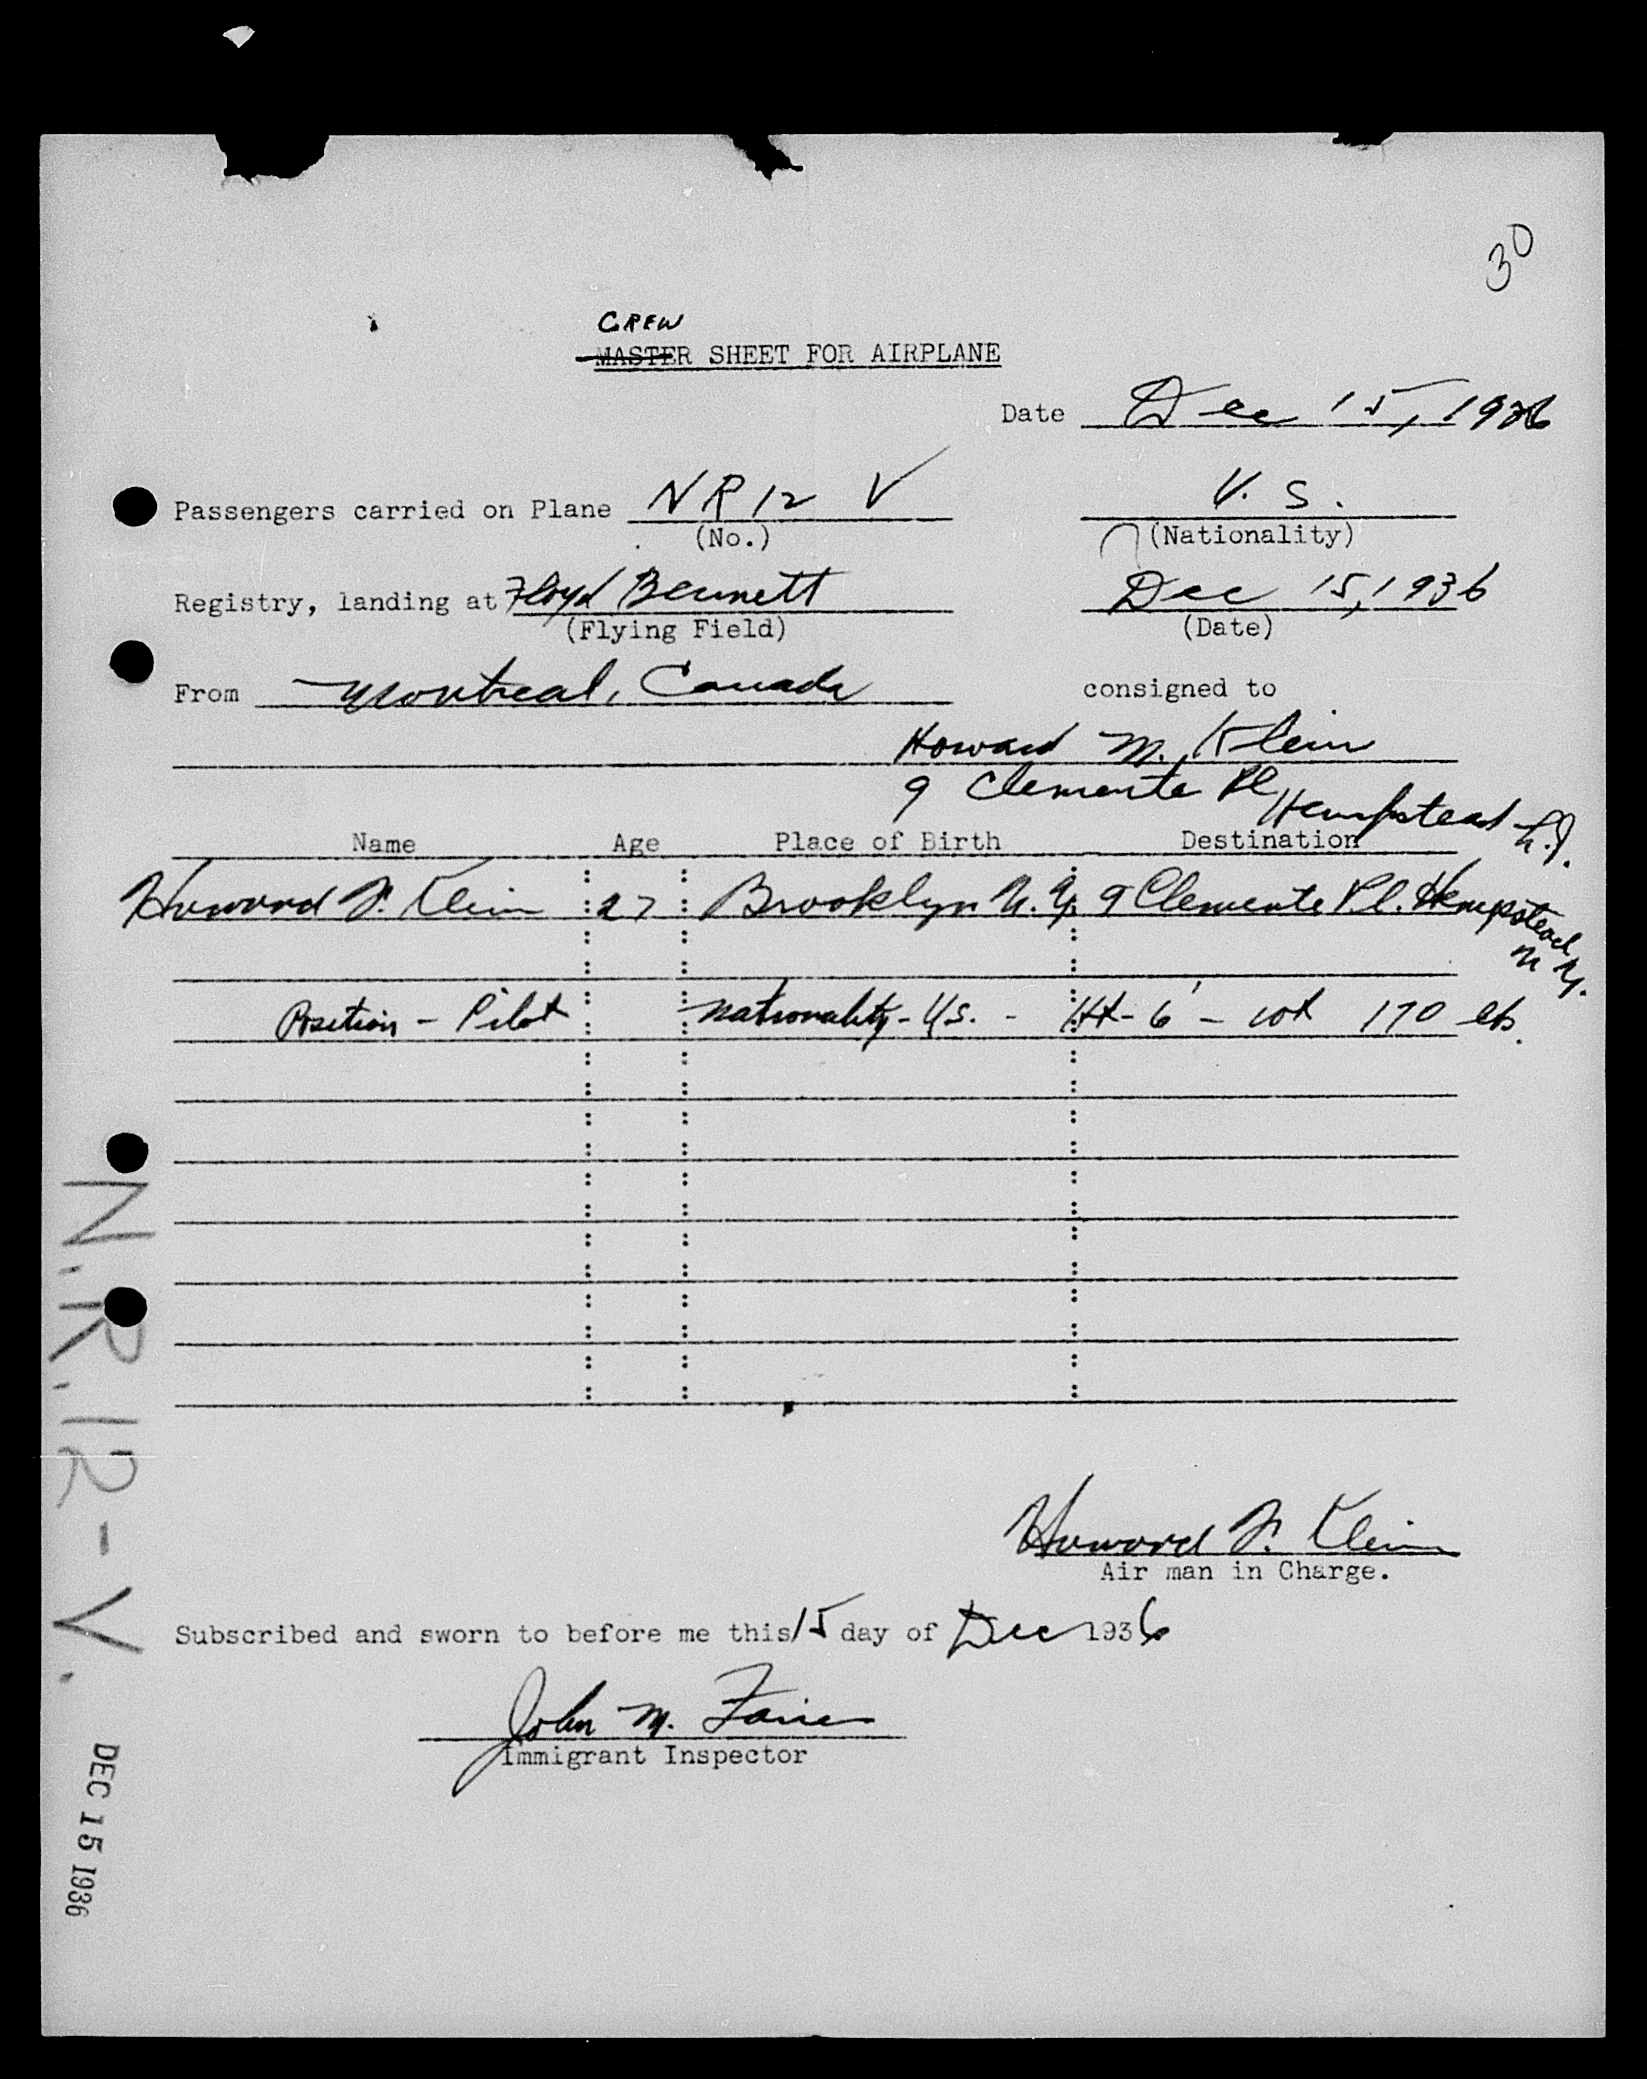 30
CREW
MASTER SHEET FOR AIRPLANE
Date Dec 15, 1936
Passengers carried on Plane NR 12 V U.S.
(No.) (Nationality)
Registry, landing at Floyd Bennett Dec 15, 1936
(Flying Field) (Date)
From Montreal, Canada consigned to
Howard M. Klein
9 Clemente Pl Hempstead L.I.
Name Age Place of Birth Destination
Howard Klein 27 Brooklyn N.Y. 9 Clemente Pl. Hempstead N.Y.
Position - Pilot Nationality - U.S. - Ht - 6' - wt 170 lbs.
Howard Klein
Air man in Charge.
Subscribed and sworn to before me this 15 day of Dec 1936
John M.
Immigrant Inspector
N.R.12-V.
DEC 15 1936